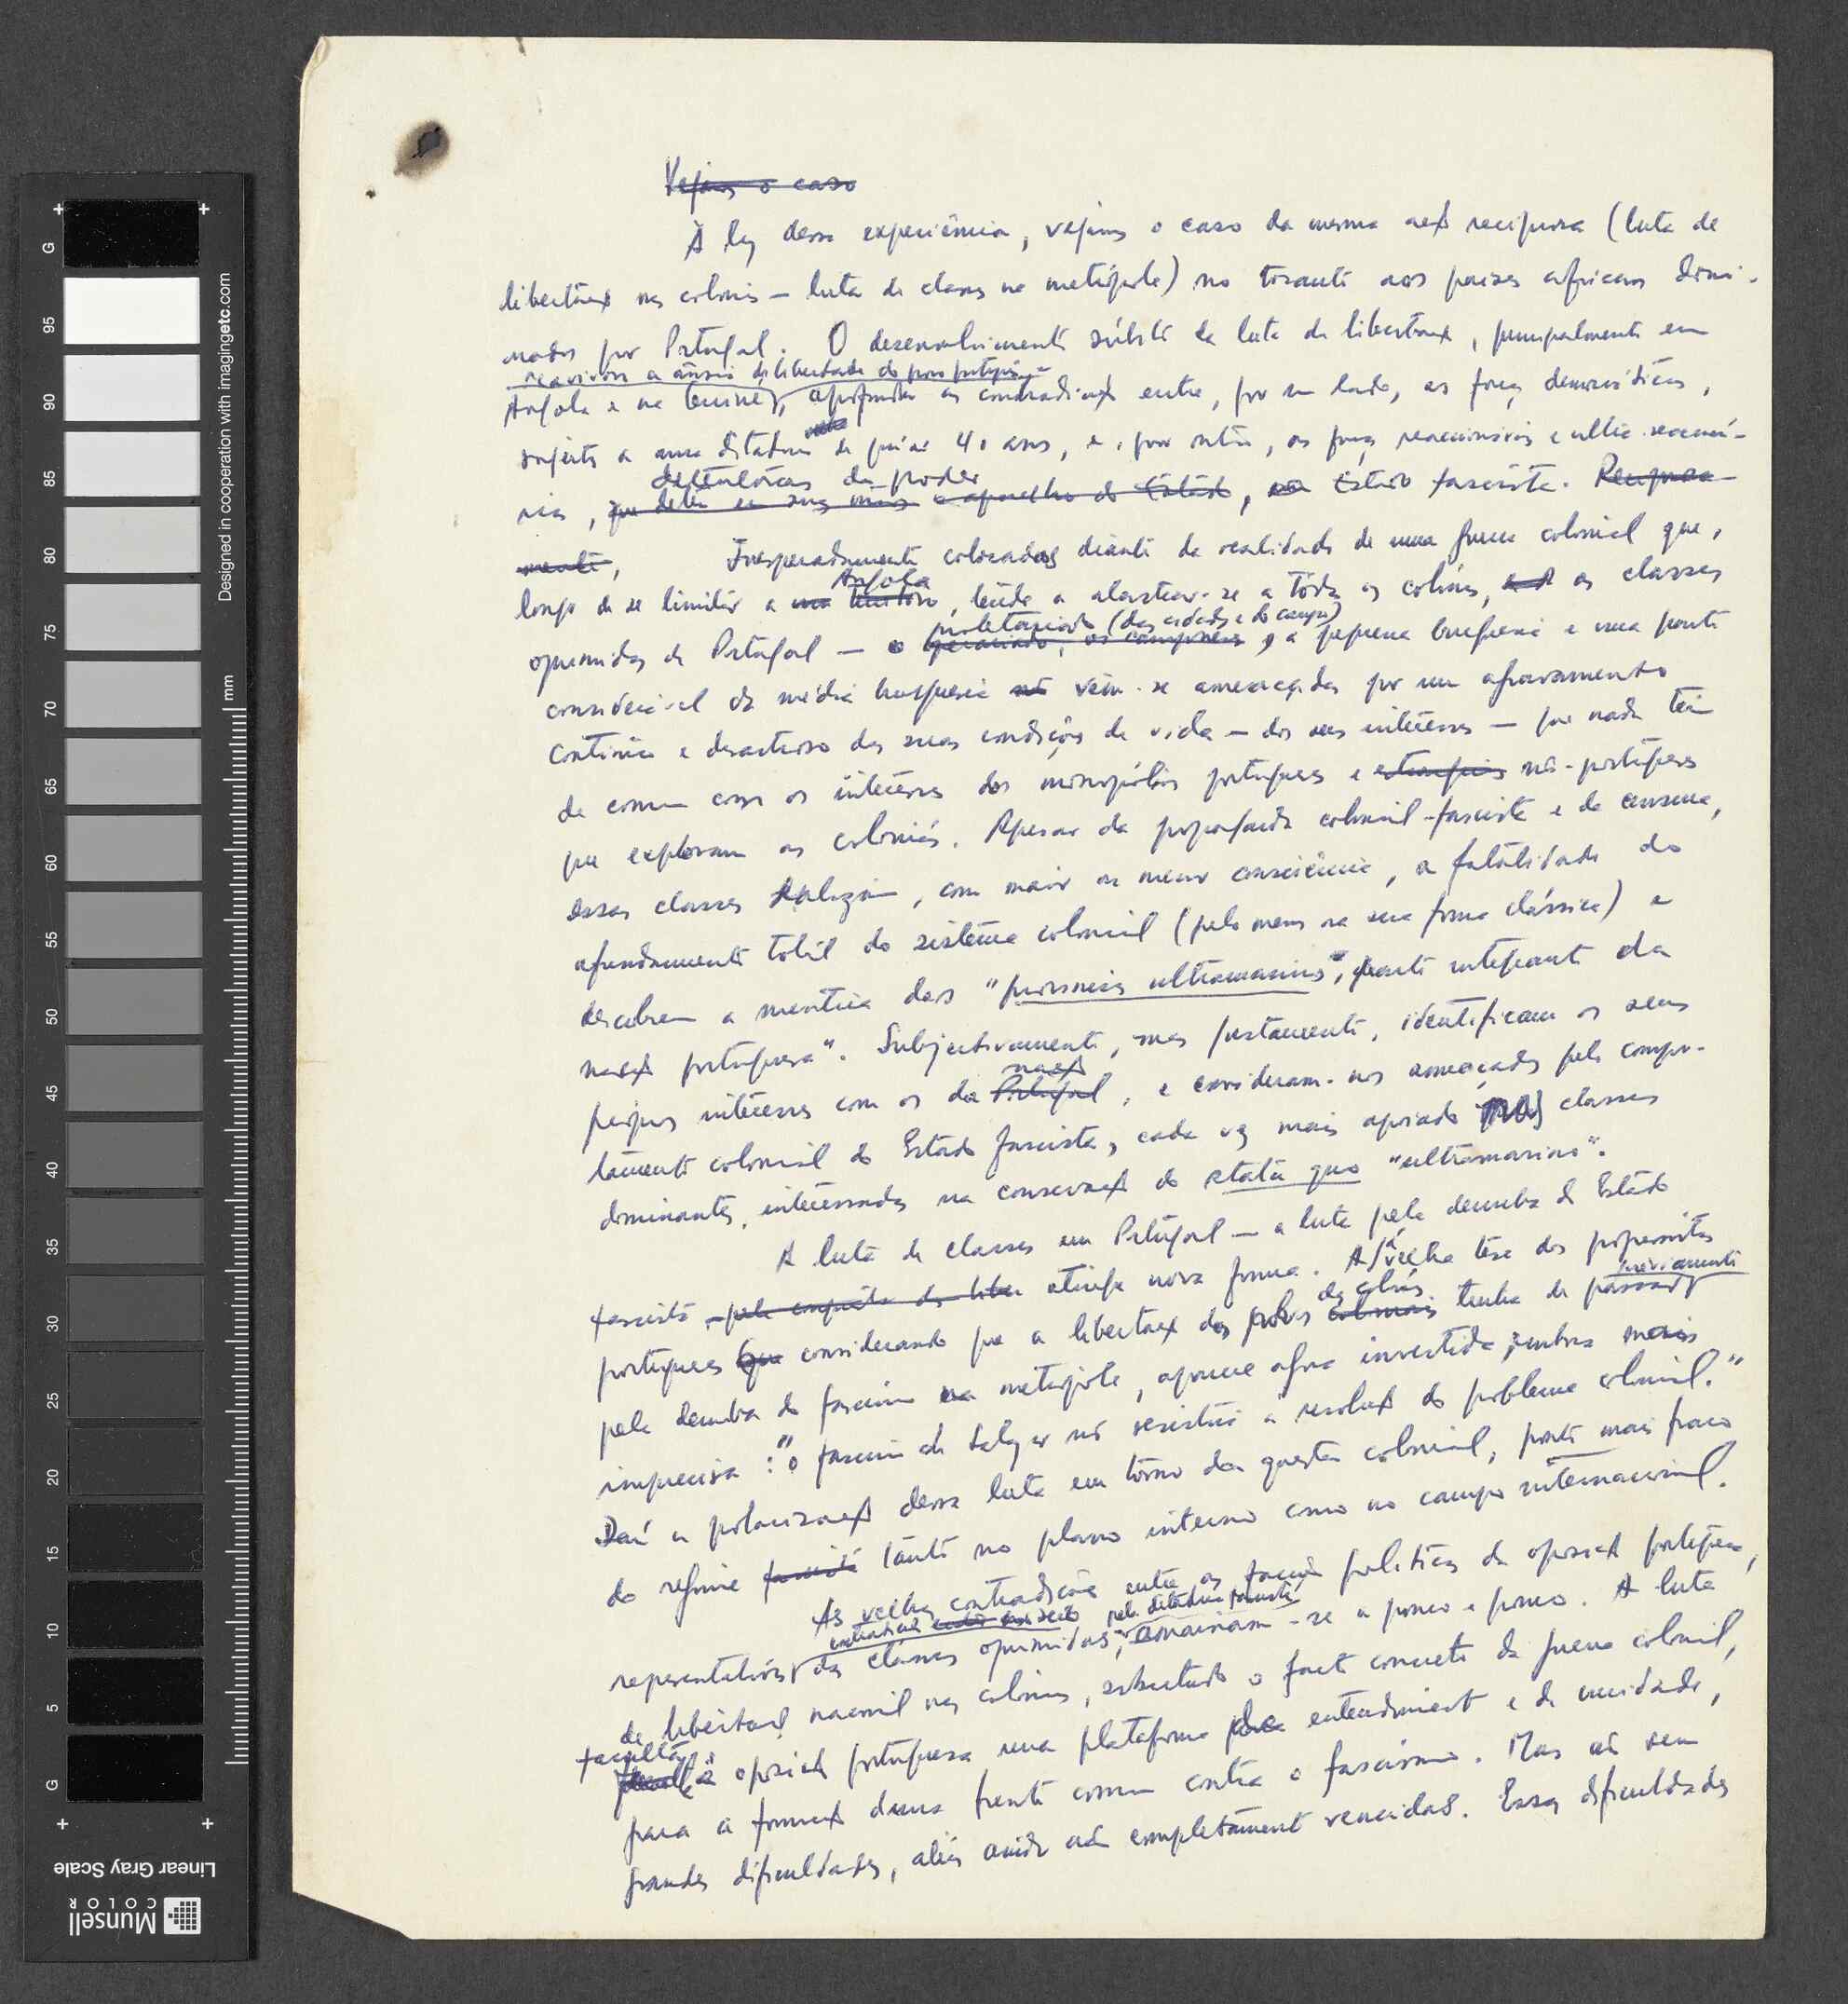 Vejamos o caso
À luz dessa experiência, vejamos o caso da mesma acção recíproca (luta de
libertação nas colónias — luta de classes na metrópole) no tocante aos países africanos domi-
nados por Portugal. O desenvolvimento súbito da luta de libertação, principalmente em
reavivou a ânsia de liberdade do povo português
Angola e na Guiné, as contradições entre, por um lado, as forças democráticas,
sujeitas a uma ditadura de quási 40 anos, e, por outro, as forças reaccionárias e ultra-reaccioná-
detentoras do poder
rias, que detêm em suas mãos o aparelho do Estado, Estado fascista. Recíproca-
mente, Inesperadamente colocadas diante da realidade de uma guerra colonial que,
Angola
longe de se limitar a um território, tende a alastrar-se a tôdas as colónias, as classes
proletariado (das cidades e do campo)
oprimidas de Portugal — o operariado, os camponeses, a pequena burguesia e uma parte
considerável da média burguesia vêem-se ameaçadas por um agravamento
contínuo e desastroso das suas condições de vida — dos seus interêsses — que nada têm
de comum com os interêsses dos monopólios portugueses e estrangeiros não-portugueses
que exploram as colónias. Apesar da propaganda colonial-fascista e da censura,
essas classes realizam, com maior ou menor consciência, a fatalidade do
afundamento total do sistema colonial (pelo menos na sua forma clássica) e
descobrem a mentira das "províncias ultramarinas", parte integrante da
nação portuguesa". Subjectivamente, mas justamente, identificam os seus
nação
próprios interêsses com os da Portugal, e consideram-nos ameaçados pelo compor-
tamento colonial do Estado fascista, cada vez mais apoiado nas classes
dominantes, interessadas na conservação do statu quo "ultramarino".
A luta de classes em Portugal — a luta pela derruba do Estado
fascista — pela conquista da liber atinge nova forma. A velha tese dos progressistas
das colónias previamente
portugueses que considerando que a libertação dos povos coloniais tenha de passar
pela derruba do fascismo na metrópole, aparece agora invertida, embora menos
imprecisa: "o fascismo de Salazar não resistirá à resolução do problema colonial."
Daí a polarização dessa luta em tôrno da questão colonial, ponto mais fraco
do regime fascista tanto no plano interno como no campo internacional.
As velhas contradições entre as facções políticas da oposição portuguesa,
pela ditadura fascista
representativas das classes oprimidas, -se a pouco e pouco. A luta
de libertação nacional nas colónias, sobretudo o facto concreto da guerra colonial,
facultou
à oposição portuguesa uma plataforma de entendimento e de unidade,
para a formação duma frente comum contra o fascismo. Mas não sem
grandes dificuldades, aliás ainda não completamente vencidas. Essas dificuldades
Designed in cooperation with imagingetc.com
mm
G 95 90 85 80 75 70 65 60 55 50 45 40 35 30 25 20 15 10 5 G
Linear Gray Scale
Munsell
COLOR